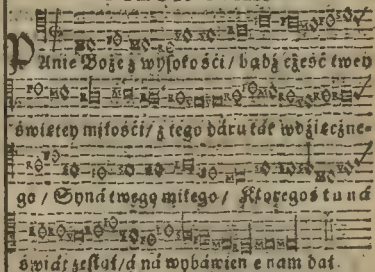 PAnie Boże z wysokośći / bądź cześć twey
świętey miłośći / z tego dáru ták wdźięczne-
go / Syná twego miłego / Ktoregoś tu ná
świát zesłał / á ná wybáwien e nam dał.